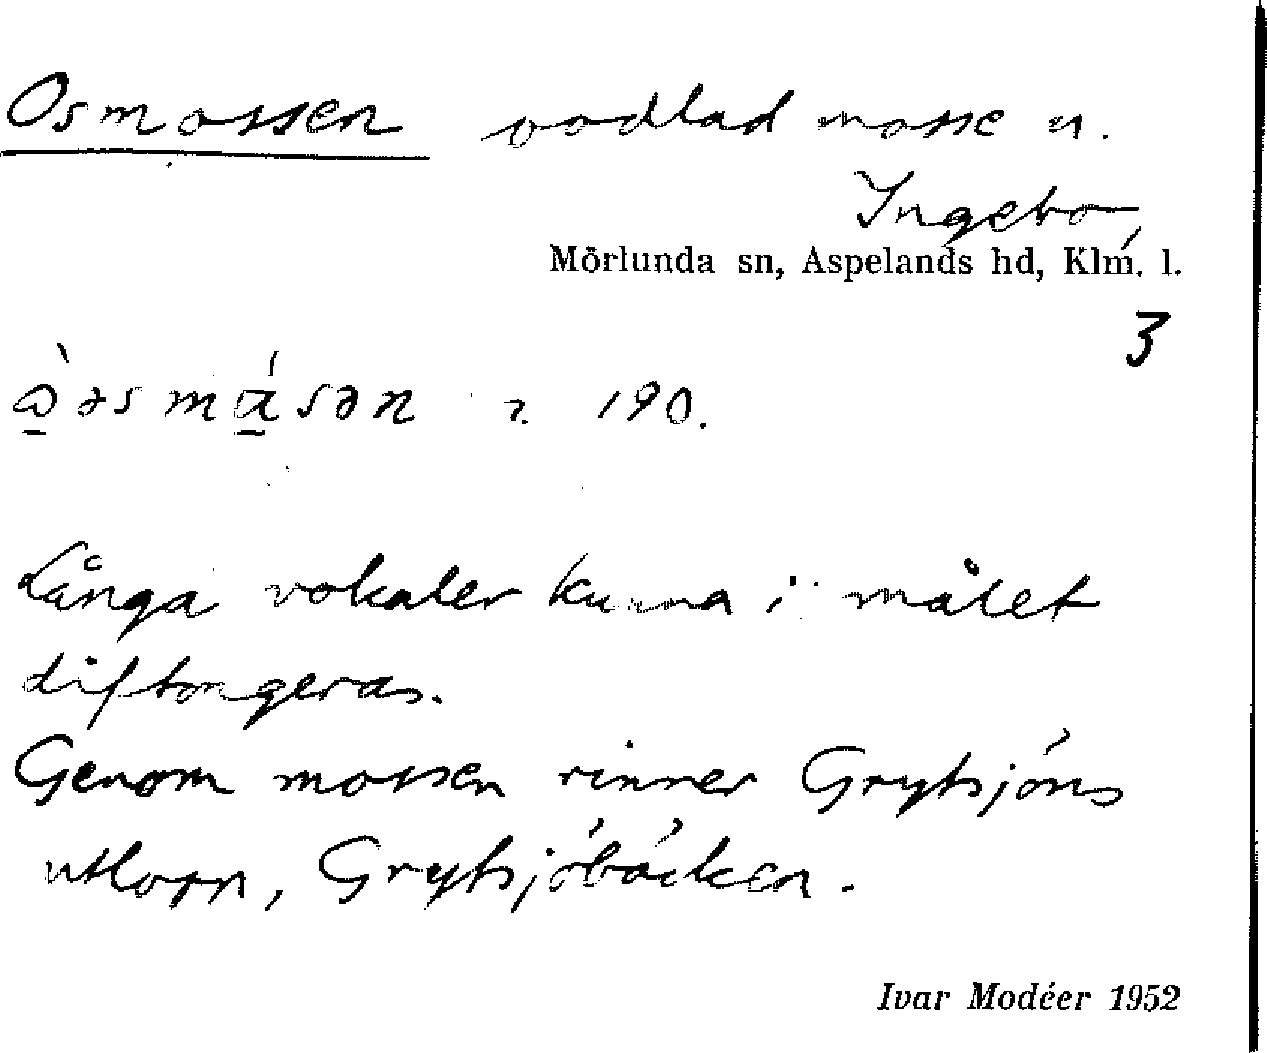 Osmossen oodlad mosse u.
Ingebo,
Mörlunda sn, Aspelands hd, Klm. l.
3
190.
Långa vokaler kunna i målet
diftongeras.
Genom mossen rinner Grytsjöns
utlopp, Grytsjöbäcken.
Ivar Modéer 1952